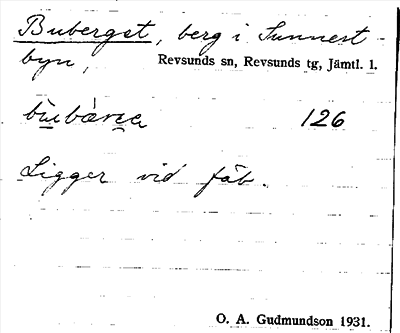 Buberget, berg i Sunnerst-
byn, Revsunds sn, Revsunds tg, Jämtl. l.
126
Ligger vid fäb.
O. A. Gudmundson 1931.